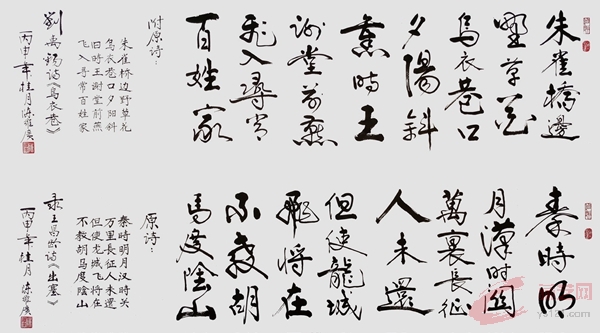 朱雀橋邊
野草花
烏衣巷口
夕陽斜
舊時王
謝堂前燕
飛入尋常
百姓家
附原诗：
朱雀桥边野草花
乌衣巷口夕阳斜
旧时王谢堂前燕
飞入寻常百姓家
劉禹錫诗《烏衣巷》
丙申年桂月
秦時明
月漢時關
萬裏長征
人未還
但使龍城
飛將在
不教胡
馬度陰山
原诗：
秦时明月汉时关
万里长征人未还
但使龙城飞将在
不教胡马度阴山
录王昌龄诗《出塞》
丙申年桂月